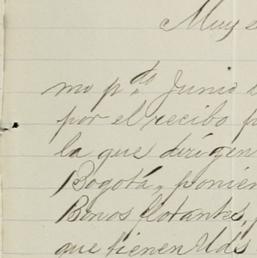 Muy
mo p.do Junio
por el recibo
la que dirigen
Bogotá, ponien
Bonos flotantes,
que tienen Uds